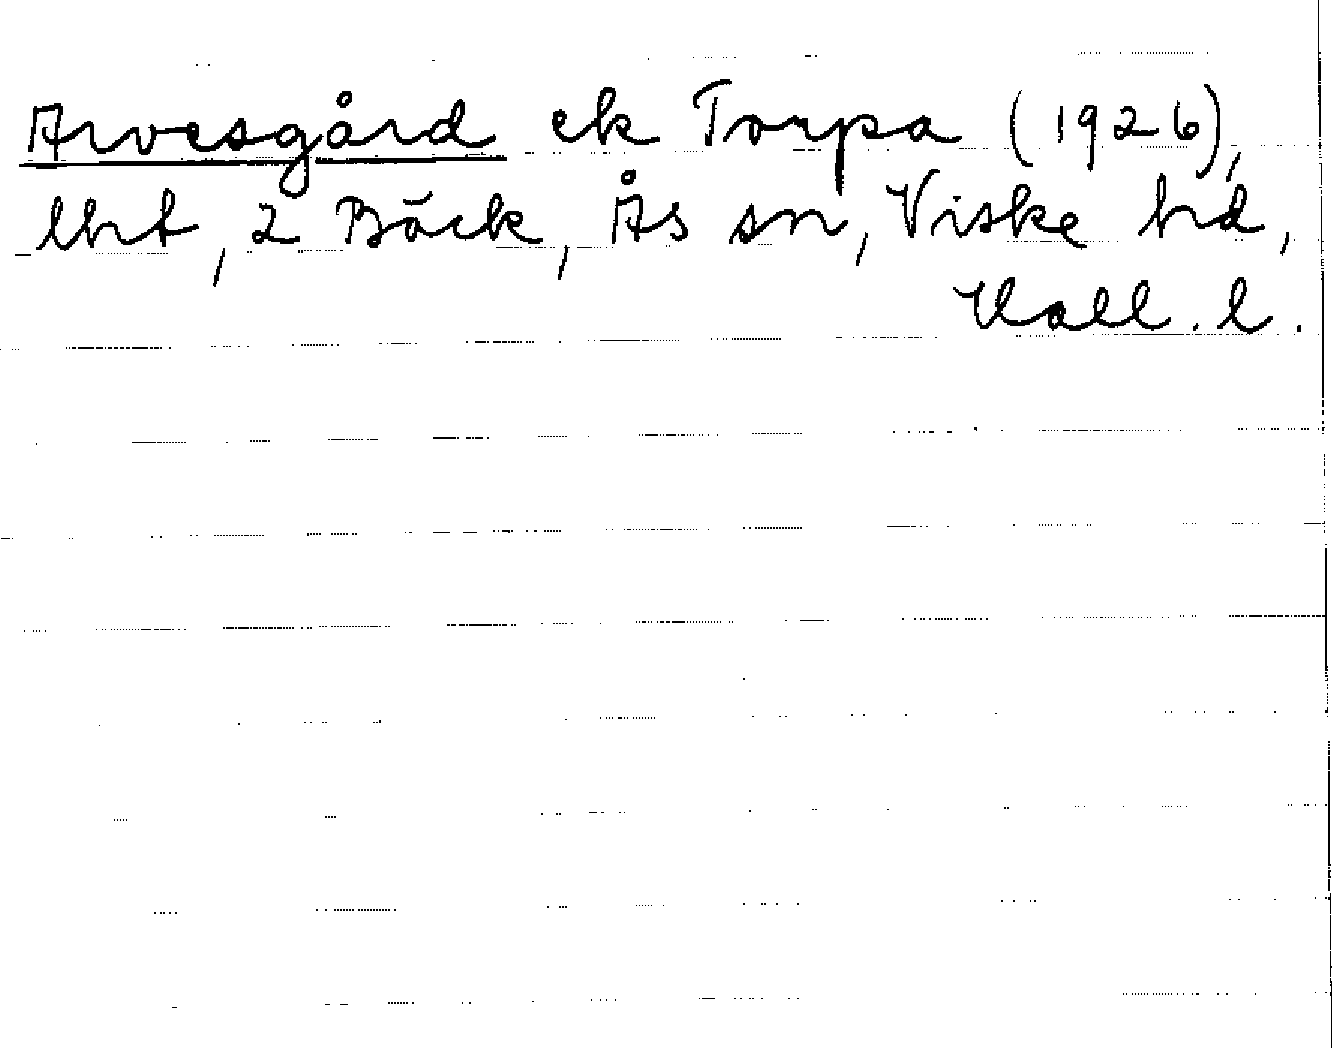 Arvesgård ek Torpa (1926),
lht, 2 Bäck, Ås sn, Viske hd,
Hall. l.